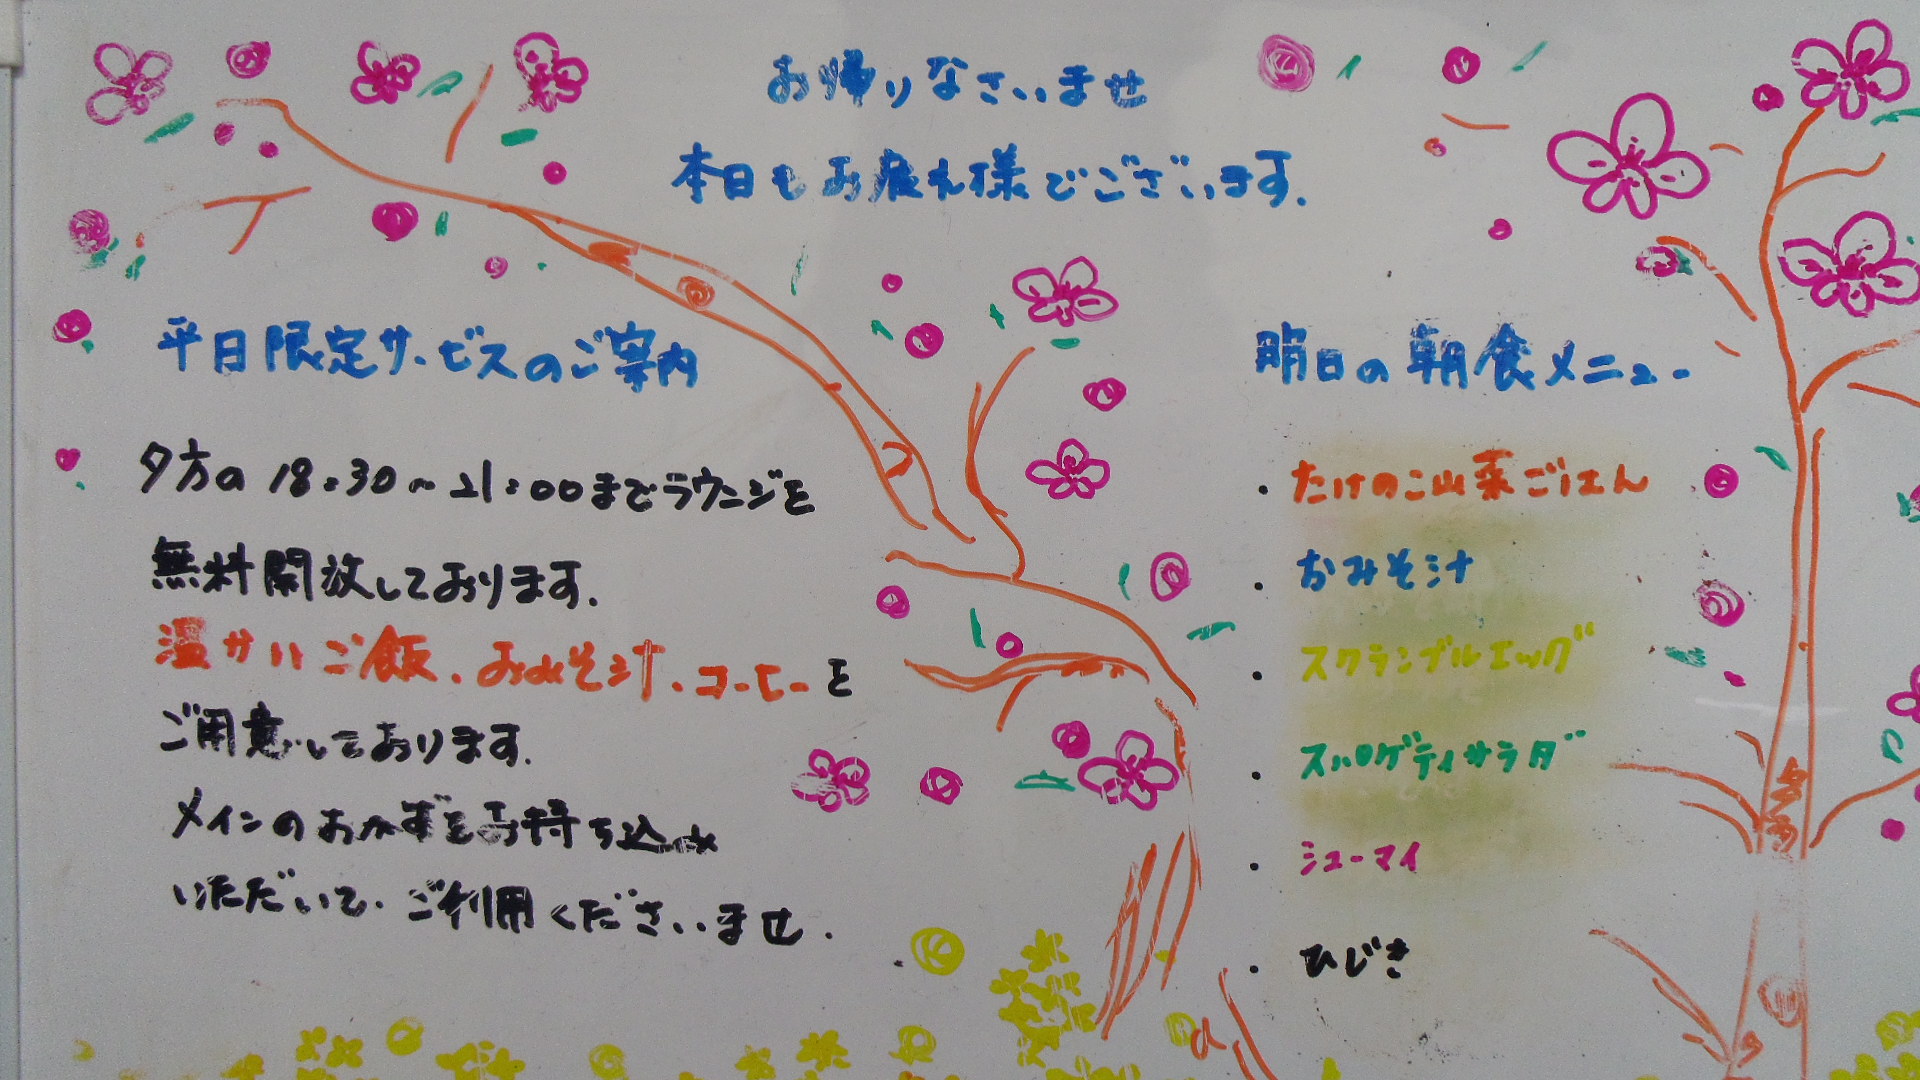 お帰りなさいませ
本日もお疲れ様でございます.
平日限定サービスのご案内
夕方の 18:30～21:00までラウンジを
無料開放しております.
温かいご飯、おみそ汁、コーヒーを
ご用意しております.
メインのおかずをお持ち込み
いただいて、ご利用くださいませ.
明日の朝食メニュー
・たけのこ山菜ごはん
・おみそ汁
・スクランブルエッグ
・スパゲティサラダ
・シューマイ
・ひじき